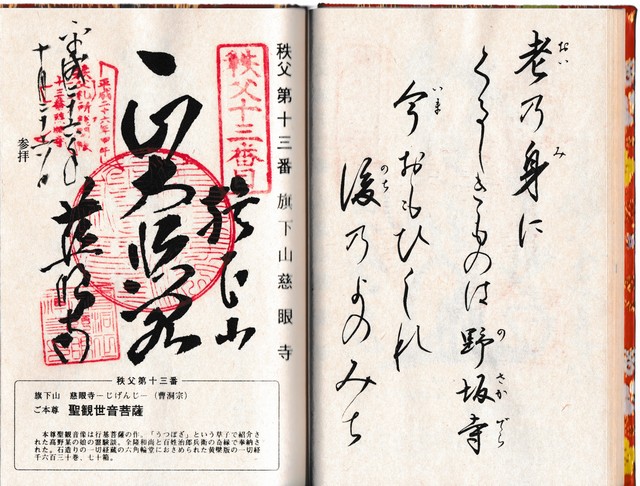 老乃身に
くるしきものは野坂寺
今おもひしれ
後乃よのみち
秩父第十三番 旗下山慈眼寺
秩父十三番
旗下山
大悲殿
慈眼寺
参拝
秩父第十三番
旗下山 慈眼寺―じげんじ―（曹洞宗）
ご本尊 聖観世音菩薩
本尊聖観音像は行基菩薩の作、「うつぼざ」という草子で紹介さ
れた高野某の娘の霊験談、全隆和尚と百姓治郎兵衛の奇縁で奉納さ
れた。石造りの一切経蔵の六角輪堂におさめられた黄檗版の一切経
千六百三十巻、七十箱。